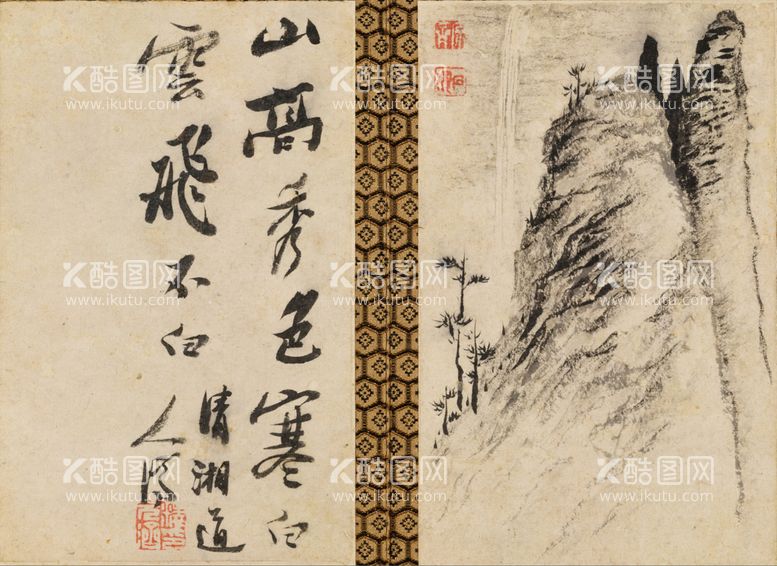 山高秀色寒白
雲飛不白
清湘道
人濟
K酷图网
www.ikutu.com
K酷图网
www.ikutu.com
K酷图网
www.ikutu.com
K酷图网
www.ikutu.com
K酷图网
www.ikutu.com
K酷图网
www.ikutu.com
K酷图网
www.ikutu.com
K酷图网
www.ikutu.com
K酷图网
www.ikutu.com